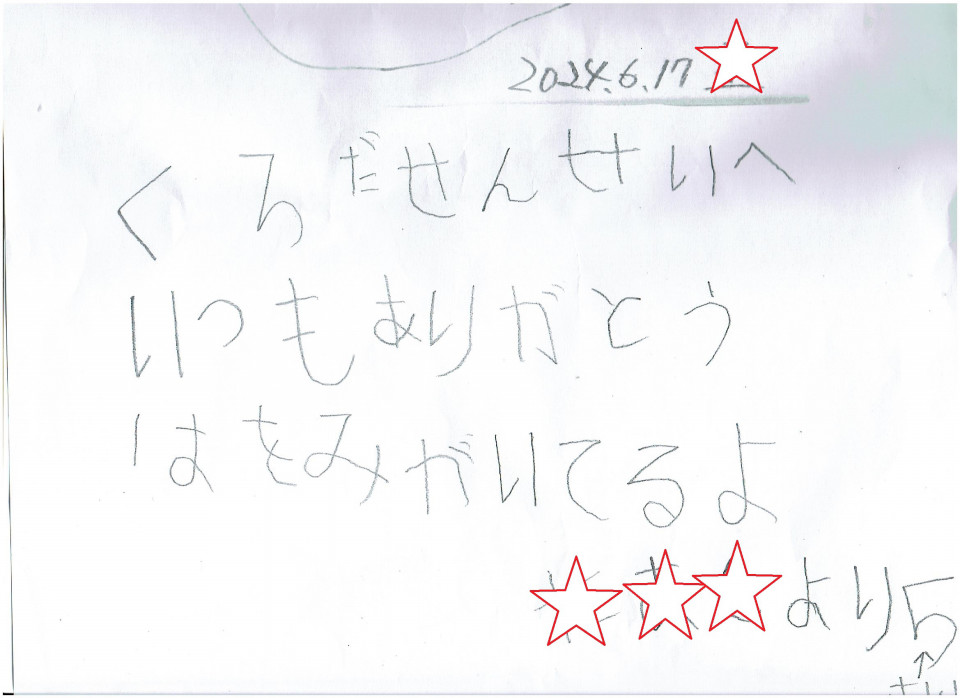 2024.6.17
くろだせんせいへ
いつもありがとう
はをみがいてるよ
より5
さい